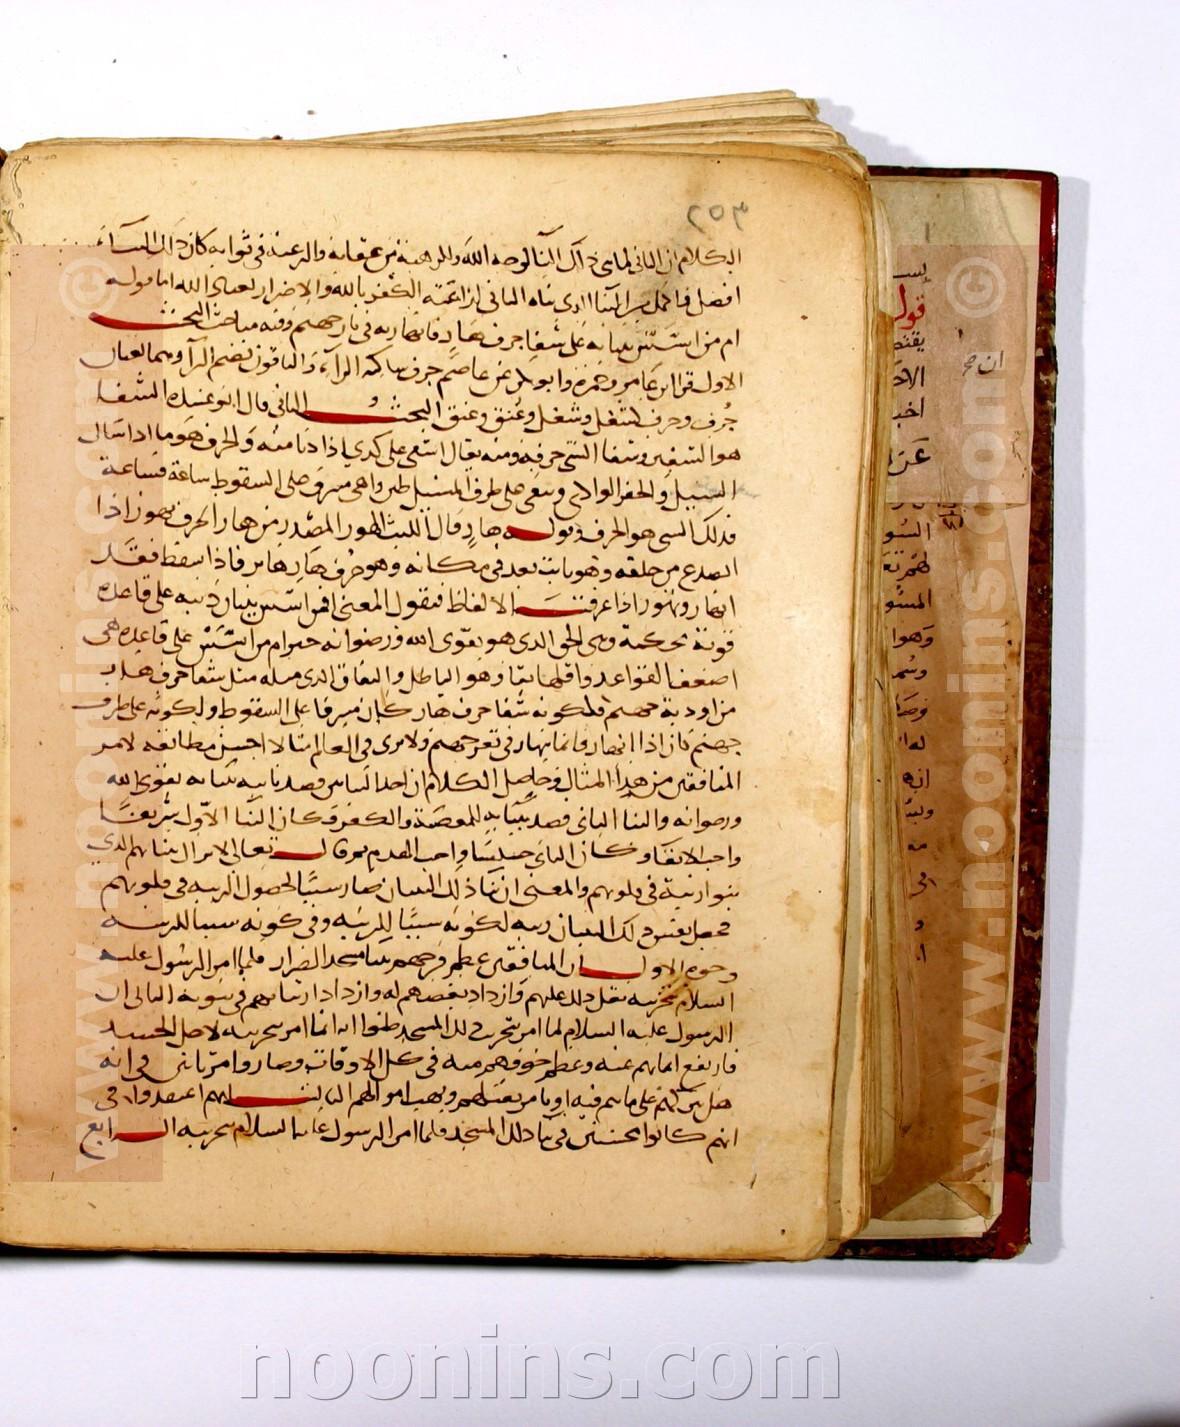 ٢٥٣
الكلام ان البانى لما بنى ذلك البنا لوجه الله والرهبة من عقابه والرغبة فى ثوابه كان ذلك البناء
افضل واكمل من البنا الذى بناه البانى لداعية الكفر بالله والاضرار بعباد الله اما قوله
ام من اسس بنيانه على شفا جرف هار فانهار به فى نار جهنم وفيه مباحث البحث
الاول قرا ابن عامر وحمزة وابو بكر عن عاصم جرف ساكنة الرآء والباقون بضم الرآ وهما لغتان
جُرف وجرف كشغل وشغل وعُنق وعنق البحث الثانى قال ابو عبيدة الشفا
هو الشفير وشفا الشى حرفه ومنه يقال اشفى على كذى اذا دنا منه والجرف هو ما اذا سال
السيل والحفر الوادى ويبقى على طرف المسيل طين واهى مشرف على السقوط ساعة فساعة
فذلك الشى هو الجرف وقوله هار قال الليث الهور المصدر من هار الجرف يهور اذا
انصدع من خلفه وهو ثابت بعد فى مكانه وهو جرف هار هاير فاذا سقط فقد
انهار وتهور اذا عرفت الالفاظ فنقول المعنى افمن اسس بنيان دينه على قاعدة
قوية محكمة وهى الحق الذى هو تقوى الله ورضوانه خير ام من اسس على قاعدة هى
اضعف القواعد واقلها بقا وهو الباطل والنفاق الذى مثله مثل شفا جرف هار
من اودية جهنم فلكونه شفا جرف هار كان مشرفا على السقوط ولكونه على طرف
جهنم كان اذا انهار فانما ينهار فى قعر جهنم ولا نرى فى العالم مثالا احسن مطابقة لامر
المنافقين من هذا المثال وحاصل الكلام ان احد البنايين قصد بانيه ببنائه تقوى الله
ورضوانه والبنا الثانى قصد ببنايه المعصية والكفر فكان البنا الاول شريفا
واجب الابقا وكان الثانى خسيسا واجب الهدم ثم قال تعالى لا يزال بنيانهم الذى
بنوا ريبة فى قلوبهم والمعنى ان بنا ذلك البنيان صار سببا لحصول الريبة فى قلوبهم
فجعل نفس ذلك البنيان ريبة لكونه سببا للريبة وفى كونه سببا للريبة
وجوه الاول ان المنافقين عظم فرحهم ببنا مسجد الضرار فلما امر الرسول عليه
السلام بتخريبه ثقل ذلك عليهم وازداد بغضهم له وازداد ارتيابهم فى نبوته الثانى ان
الرسول عليه السلام لما امر بتخريب ذلك المسجد ظنوا انه انما امر بتخريبه لاجل الحسد
فارتفع امانهم عنه وعظم خوفهم منه فى كل الاوقات وصاروا مرتابين فى انه
هل يتركهم على ما هم فيه او يامر بقتلهم ونهب اموالهم الثالث انهم اعتقدوا فى
انهم كانوا محسنين فى بنا ذلك المسجد فلما امر الرسول عليه السلام بتخريبه الرابع
قول
www.noonins.com ©
www.noonins.com ©
noonins.com